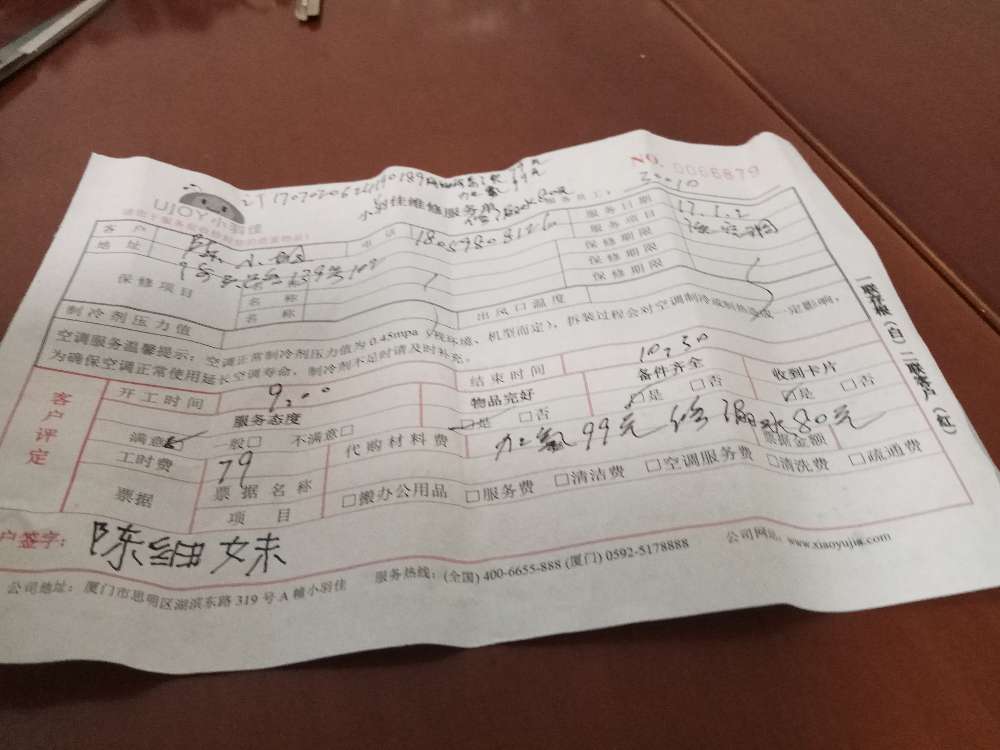 NO. 0066879
UJOY小羽佳
79元
加氧99元
80元
小羽佳维修服务单
服务员工：
客户
电话 18059808126
服务日期 17.1.2
地址
服务项目
保修项目
名称
保修期限
名称
保修期限
名称
保修期限
制冷剂压力值
出风口温度
空调服务温馨提示：空调正常制冷剂压力值为0.45mpa（视环境、机型而定），拆装过程会对空调制冷或制热造成一定影响，
为确保空调正常使用延长空调寿命，制冷剂不足时请及时补充。
客户评定
开工时间 9:00
结束时间 10:30
服务态度
物品完好
备件齐全
收到卡片
满意 一般□ 不满意□
是 □否
是 □否
是 □否
工时费 79
代购材料费 加氧99元 修漏水80元
票据
票据名称
□搬办公用品 □服务费 □清洁费 □空调服务费 □清洗费 □疏通费
项目
票据金额
户签字： 陈细妹
公司地址：厦门市思明区湖滨东路319号A幢小羽佳
服务热线：(全国) 400-6655-888 (厦门) 0592-5178888
公司网站：www.xiaoyujia.com
一联存根（白）二联客户（红）